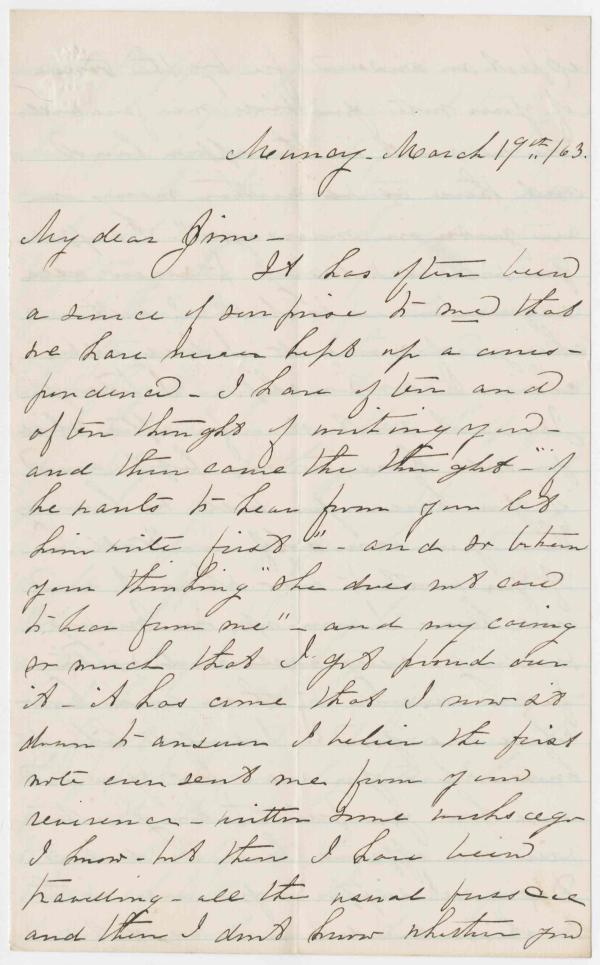 Muncy - March 19th /63.
My dear Jim -
It has often been
a source of surprise to me that
we have never kept up a corres-
pondence - I have often and
often thought of writing you -
and then came the thought - "if
he wants to hear from you let
him write first" - and so between
your thinking "she does not care
to hear from me" - and my caring
so much that I got proud over
it - it has come that I now sit
down to answer I believe the first
note ever sent me from your
reverence - written some weeks ago
I know - but then I have been
travelling - all the usual fuss &c &c
and then I don't know whether you